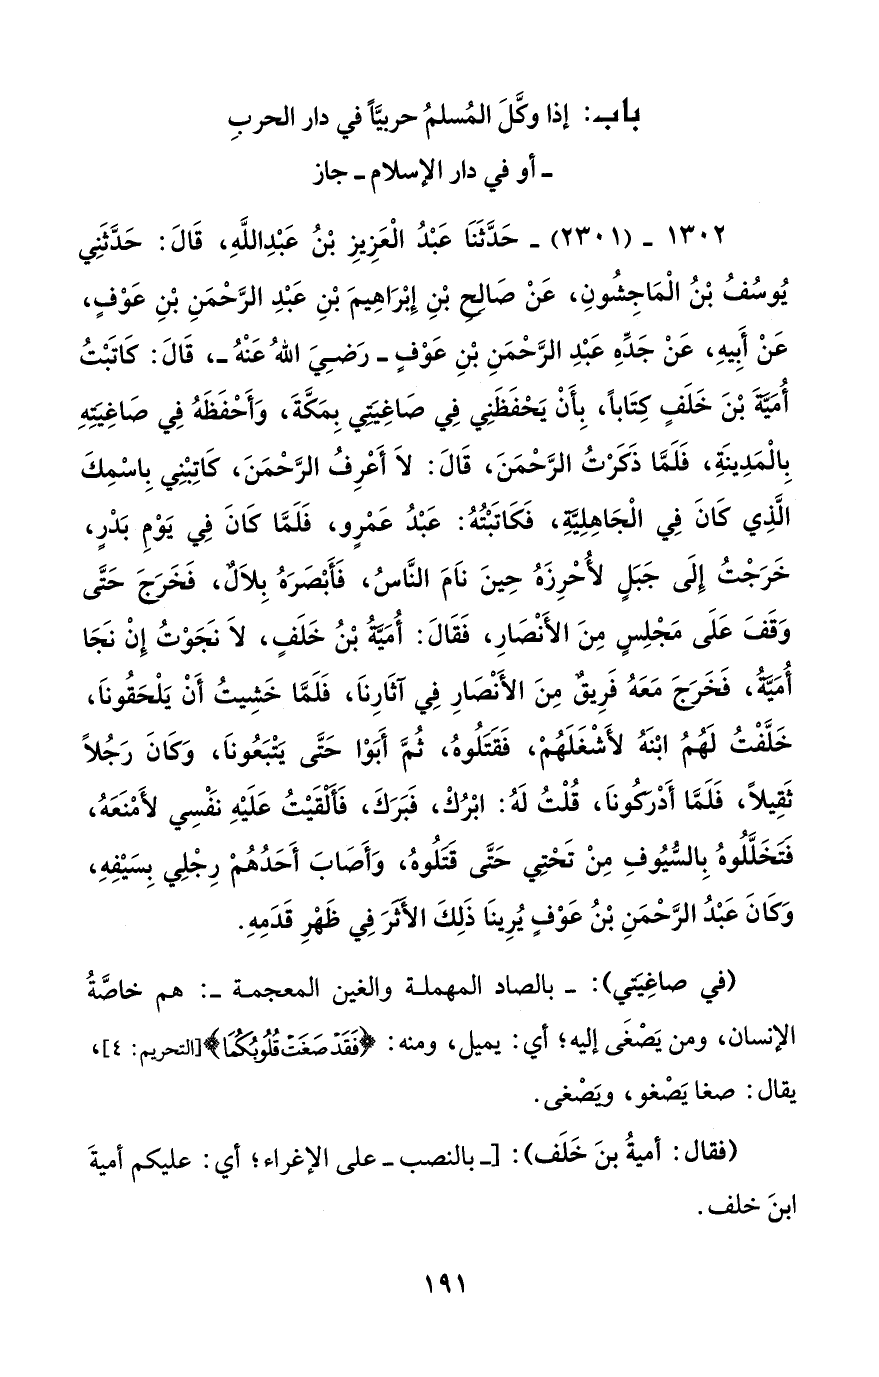 باب: إذا وكَّلَ المُسلمُ حربيَّاً في دار الحربِ
- أو في دار الإسلام - جاز
١٣٠٢ - (٢٣٠١) - حَدَّثَنَا عَبْدُ الْعَزِيزِ بْنُ عَبْدِاللَّهِ، قَالَ: حَدَّثَنِي
يُوسُفُ بْنُ الْمَاجِشُونِ، عَنْ صَالِحِ بْنِ إِبْرَاهِيمَ بْنِ عَبْدِ الرَّحْمَنِ بْنِ عَوْفٍ،
عَنْ أَبِيهِ، عَنْ جَدِّهِ عَبْدِ الرَّحْمَنِ بْنِ عَوْفٍ - رَضِيَ اللهُ عَنْهُ -، قَالَ: كَاتَبْتُ
أُمَيَّةَ بْنَ خَلَفٍ كِتَاباً، بِأَنْ يَحْفَظَنِي فِي صَاغِيَتِي بِمَكَّةَ، وَأَحْفَظَهُ فِي صَاغِيَتِهِ
بِالْمَدِينَةِ، فَلَمَّا ذَكَرْتُ الرَّحْمَنَ، قَالَ: لاَ أَعْرِفُ الرَّحْمَنَ، كَاتِبْنِي بِاسْمِكَ
الَّذِي كَانَ فِي الْجَاهِلِيَّةِ، فَكَاتَبْتُهُ: عَبْدُ عَمْرٍو، فَلَمَّا كَانَ فِي يَوْمِ بَدْرٍ،
خَرَجْتُ إِلَى جَبَلٍ لأُحْرِزَهُ حِينَ نَامَ النَّاسُ، فَأَبْصَرَهُ بِلاَلٌ، فَخَرَجَ حَتَّى
وَقَفَ عَلَى مَجْلِسٍ مِنَ الأَنْصَارِ، فَقَالَ: أُمَيَّةُ بْنُ خَلَفٍ، لاَ نَجَوْتُ إِنْ نَجَا
أُمَيَّةُ، فَخَرَجَ مَعَهُ فَرِيقٌ مِنَ الأَنْصَارِ فِي آثَارِنَا، فَلَمَّا خَشِيتُ أَنْ يَلْحَقُونَا،
خَلَّفْتُ لَهُمُ ابْنَهُ لأَشْغَلَهُمْ، فَقَتَلُوهُ، ثُمَّ أَبَوْا حَتَّى يَتْبَعُونَا، وَكَانَ رَجُلاً
ثَقِيلاً، فَلَمَّا أَدْرَكُونَا، قُلْتُ لَهُ: ابْرُكْ، فَبَرَكَ، فَأَلْقَيْتُ عَلَيْهِ نَفْسِي لأَمْنَعَهُ،
فَتَخَلَّلُوهُ بِالسُّيُوفِ مِنْ تَحْتِي حَتَّى قَتَلُوهُ، وَأَصَابَ أَحَدُهُمْ رِجْلِي بِسَيْفِهِ،
وَكَانَ عَبْدُ الرَّحْمَنِ بْنُ عَوْفٍ يُرِينَا ذَلِكَ الأَثَرَ فِي ظَهْرِ قَدَمِهِ.
(في صاغِيَتي): - بالصاد المهملة والغين المعجمة -: هم خاصَّةُ
الإنسان، ومن يَصْغَى إليه؛ أي: يميل، ومنه: ﴿فَقَدْ صَغَتْ قُلُوبُكُمَا﴾[التحريم: ٤]،
يقال: صغا يَصْغو، ويَصْغى.
(فقال: أميةُ بنَ خَلَف): [- بالنصب - على الإغراء؛ أي: عليكم أميةَ
ابنَ خلف.
١٩١